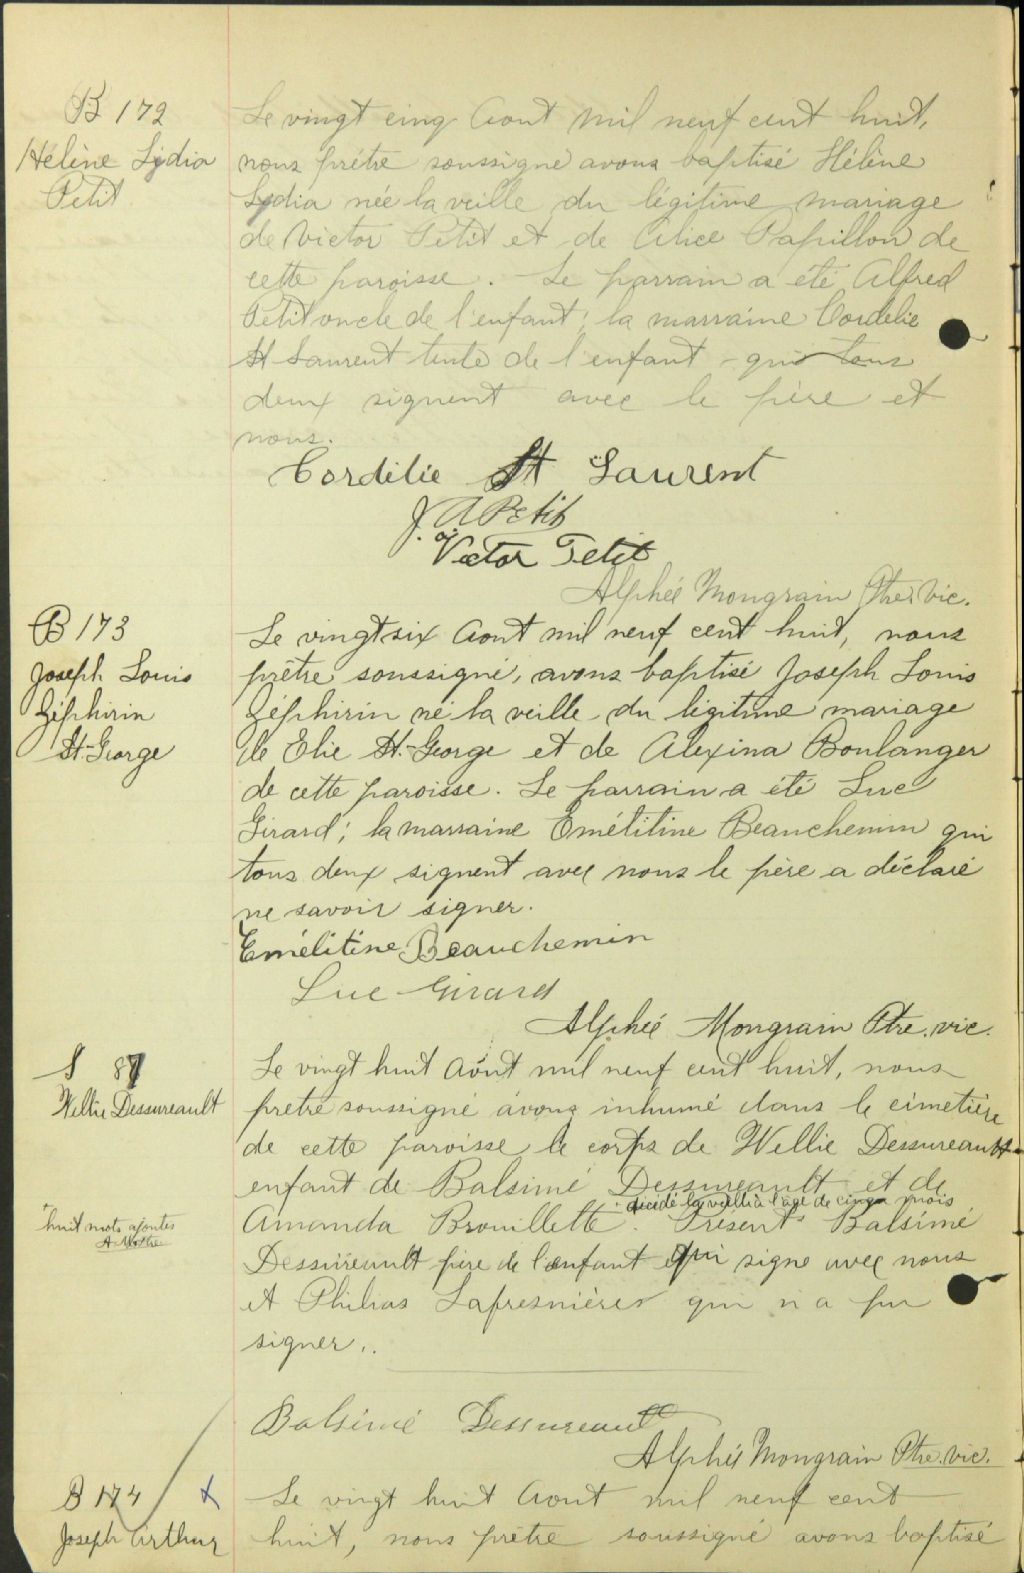 B 172
Hélène Lydia
Petit
Le vingt cinq Aout mil neuf cent huit,
nous prêtre soussigné avons baptisé Hélène
Lydia née la veille du légitime mariage
de Victor Petit et de Alice Papillon de
cette paroisse. Le parrain a été Alfred
Petit oncle de l'enfant; la marraine Cordélie
St Laurent tente de l'enfant qui tous
deux signent avec le père et
nous.
Cordélie St Laurent
J. A Petit
Victor Petit
Alphée Mongrain Ptre. vic.
B 173
Joseph Louis
Zéphirin
St-George
Le vingt six Aout mil neuf cent huit, nous
prêtre soussigné, avons baptisé Joseph Louis
Zéphirin né la veille du légitime mariage
de Elie St-George et de Alexina Boulanger
de cette paroisse. Le parrain a été Luc
Girard; la marraine Emélitine Beauchemin qui
tous deux signent avec nous le père a déclaré
ne savoir signer.
Emélitine Beauchemin
Luc Girard
Alphée Mongrain Ptre. vic.
S 87
Wellie Dessureault
Le vingt huit Aout mil neuf cent huit, nous
prêtre soussigné avons inhumé dans le cimetière
de cette paroisse le corps de Wellie Dessureault
enfant de Balsimé Dessureault et de
+ décédé la veille à l'âge de cinq mois
Amanda Brouillette. Présent Balsimé
Dessureault père de l'enfant qui signe avec nous
et Philias Lafresnière qui n'a pu
signer.
+ huit mots ajoutés
Balsimé Dessureault
Alphée Mongrain Ptre. vic.
B 174 x
Joseph Arthur
Le vingt huit Aout mil neuf cent
huit, nous prêtre soussigné avons baptisé